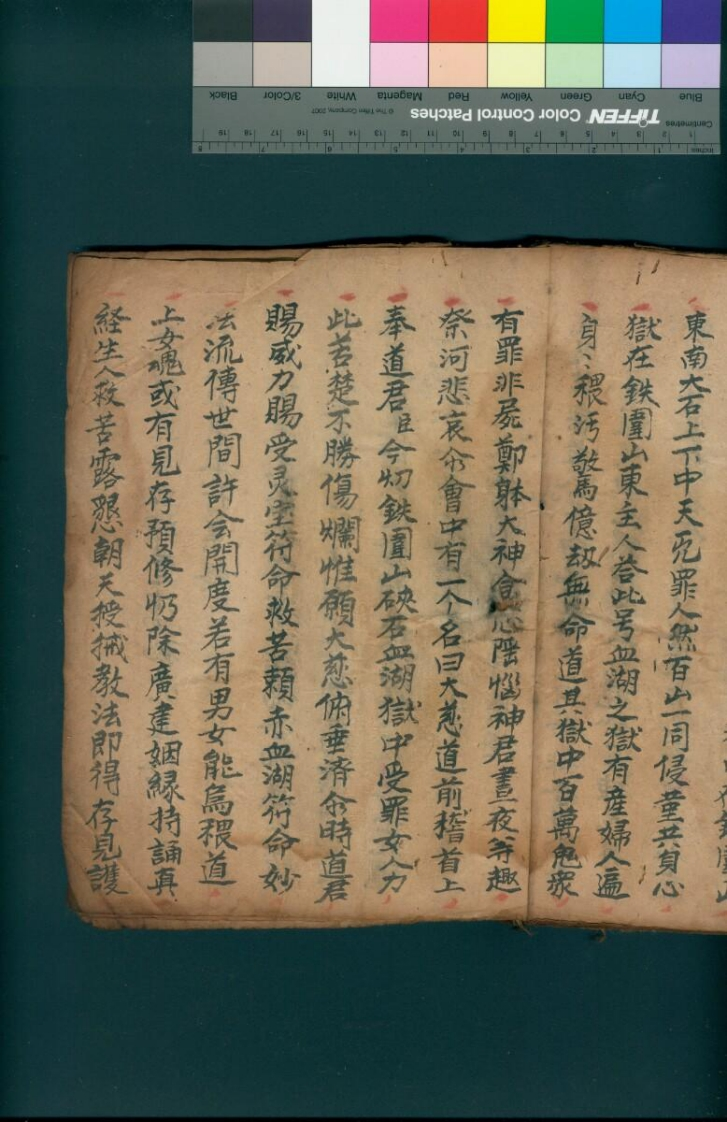 Blue
Cyan
Green
Yellow
Red
Magenta
White
3/Color
Black
TIFFEN Color Control Patches
© The Tiffen Company, 2007
Centimetres
Inches
東南大石上下中天死罪人然百山一同侵董共身心
獄在鉄圍山東主人荅此号血湖之獄有産婦人遍
身〻穢汚驚億劫無命道其獄中百萬鬼衆
有罪非屍鄭躰大神食悪陰惱神君晝夜等趣
奈河悲哀尒會中有一个名曰大慈道前稽首上
奉道君臣今切鉄圍山硤石血湖獄中受罪女人力
此苦楚不勝傷爛惟願大慈俯垂済尒時道君
賜威力賜受灵宝符命救苦頼赤血湖符命妙
法流傳世間許会開度若有男女能爲穢道
上女魂或有見存預修仍除廣建姻縁持誦真
経生人救苦露懇朝天授掝教法即得存見護